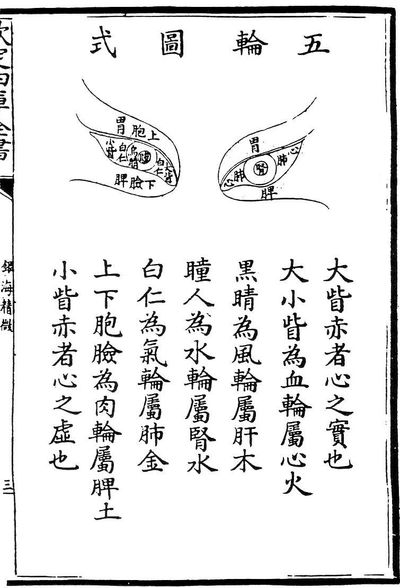 五輪圖式
胃
心肺
腎
肺心
脾
上胞胃
白仁
白仁
小眥
下臉脾
大眥赤者心之實也
大小眥為血輪屬心火
黑睛為風輪屬肝木
瞳人為水輪屬腎水
白仁為氣輪屬肺金
上下胞臉為肉輪屬脾土
小眥赤者心之虛也
欽定四庫全書
銀海精微
三